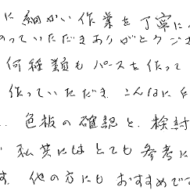 に細かい作業を丁寧に
っていただきありがとうござ
何種類もパースを作って
作っていただき、こんなに
色板の確認と、検討
私共にはとても参考に
す。他の方にもおすすめで